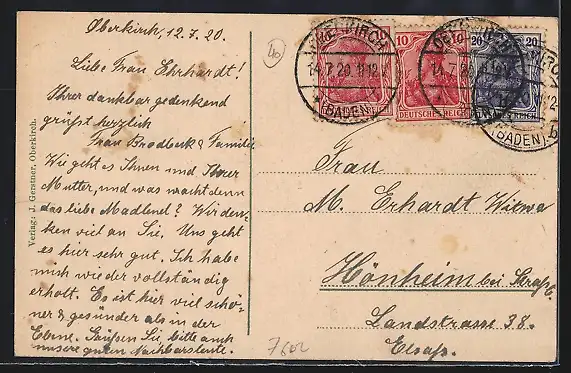 Oberkirch, 12.7.20.
Liebe Frau Ehrhardt!
Ihrer dankbar gedenkend
grüßt herzlich
Frau Brodbeck & Familie
Wie geht es Ihnen und Ihrer
Mutter, und was macht denn
das liebe Madlenel? Wir den-
ken viel an Sie. Uns geht
es hier sehr gut. Ich habe
mich wieder vollständig
erholt. Es ist hier viel schö-
ner & gesünder als in der
Ebene. Grüßen Sie, bitte auch
unsere guten Nachbarsleute.
Verlag: J. Gerstner, Oberkirch.
40
OBERKIRCH
14.7.20. 11-12
(BADEN)
10 10
DEUTSCHES REICH
20 20
(BADEN) b
Frau
M. Erhardt Witwe
Hönheim bei Straßb.
Landstrasse 38.
Elsaß.